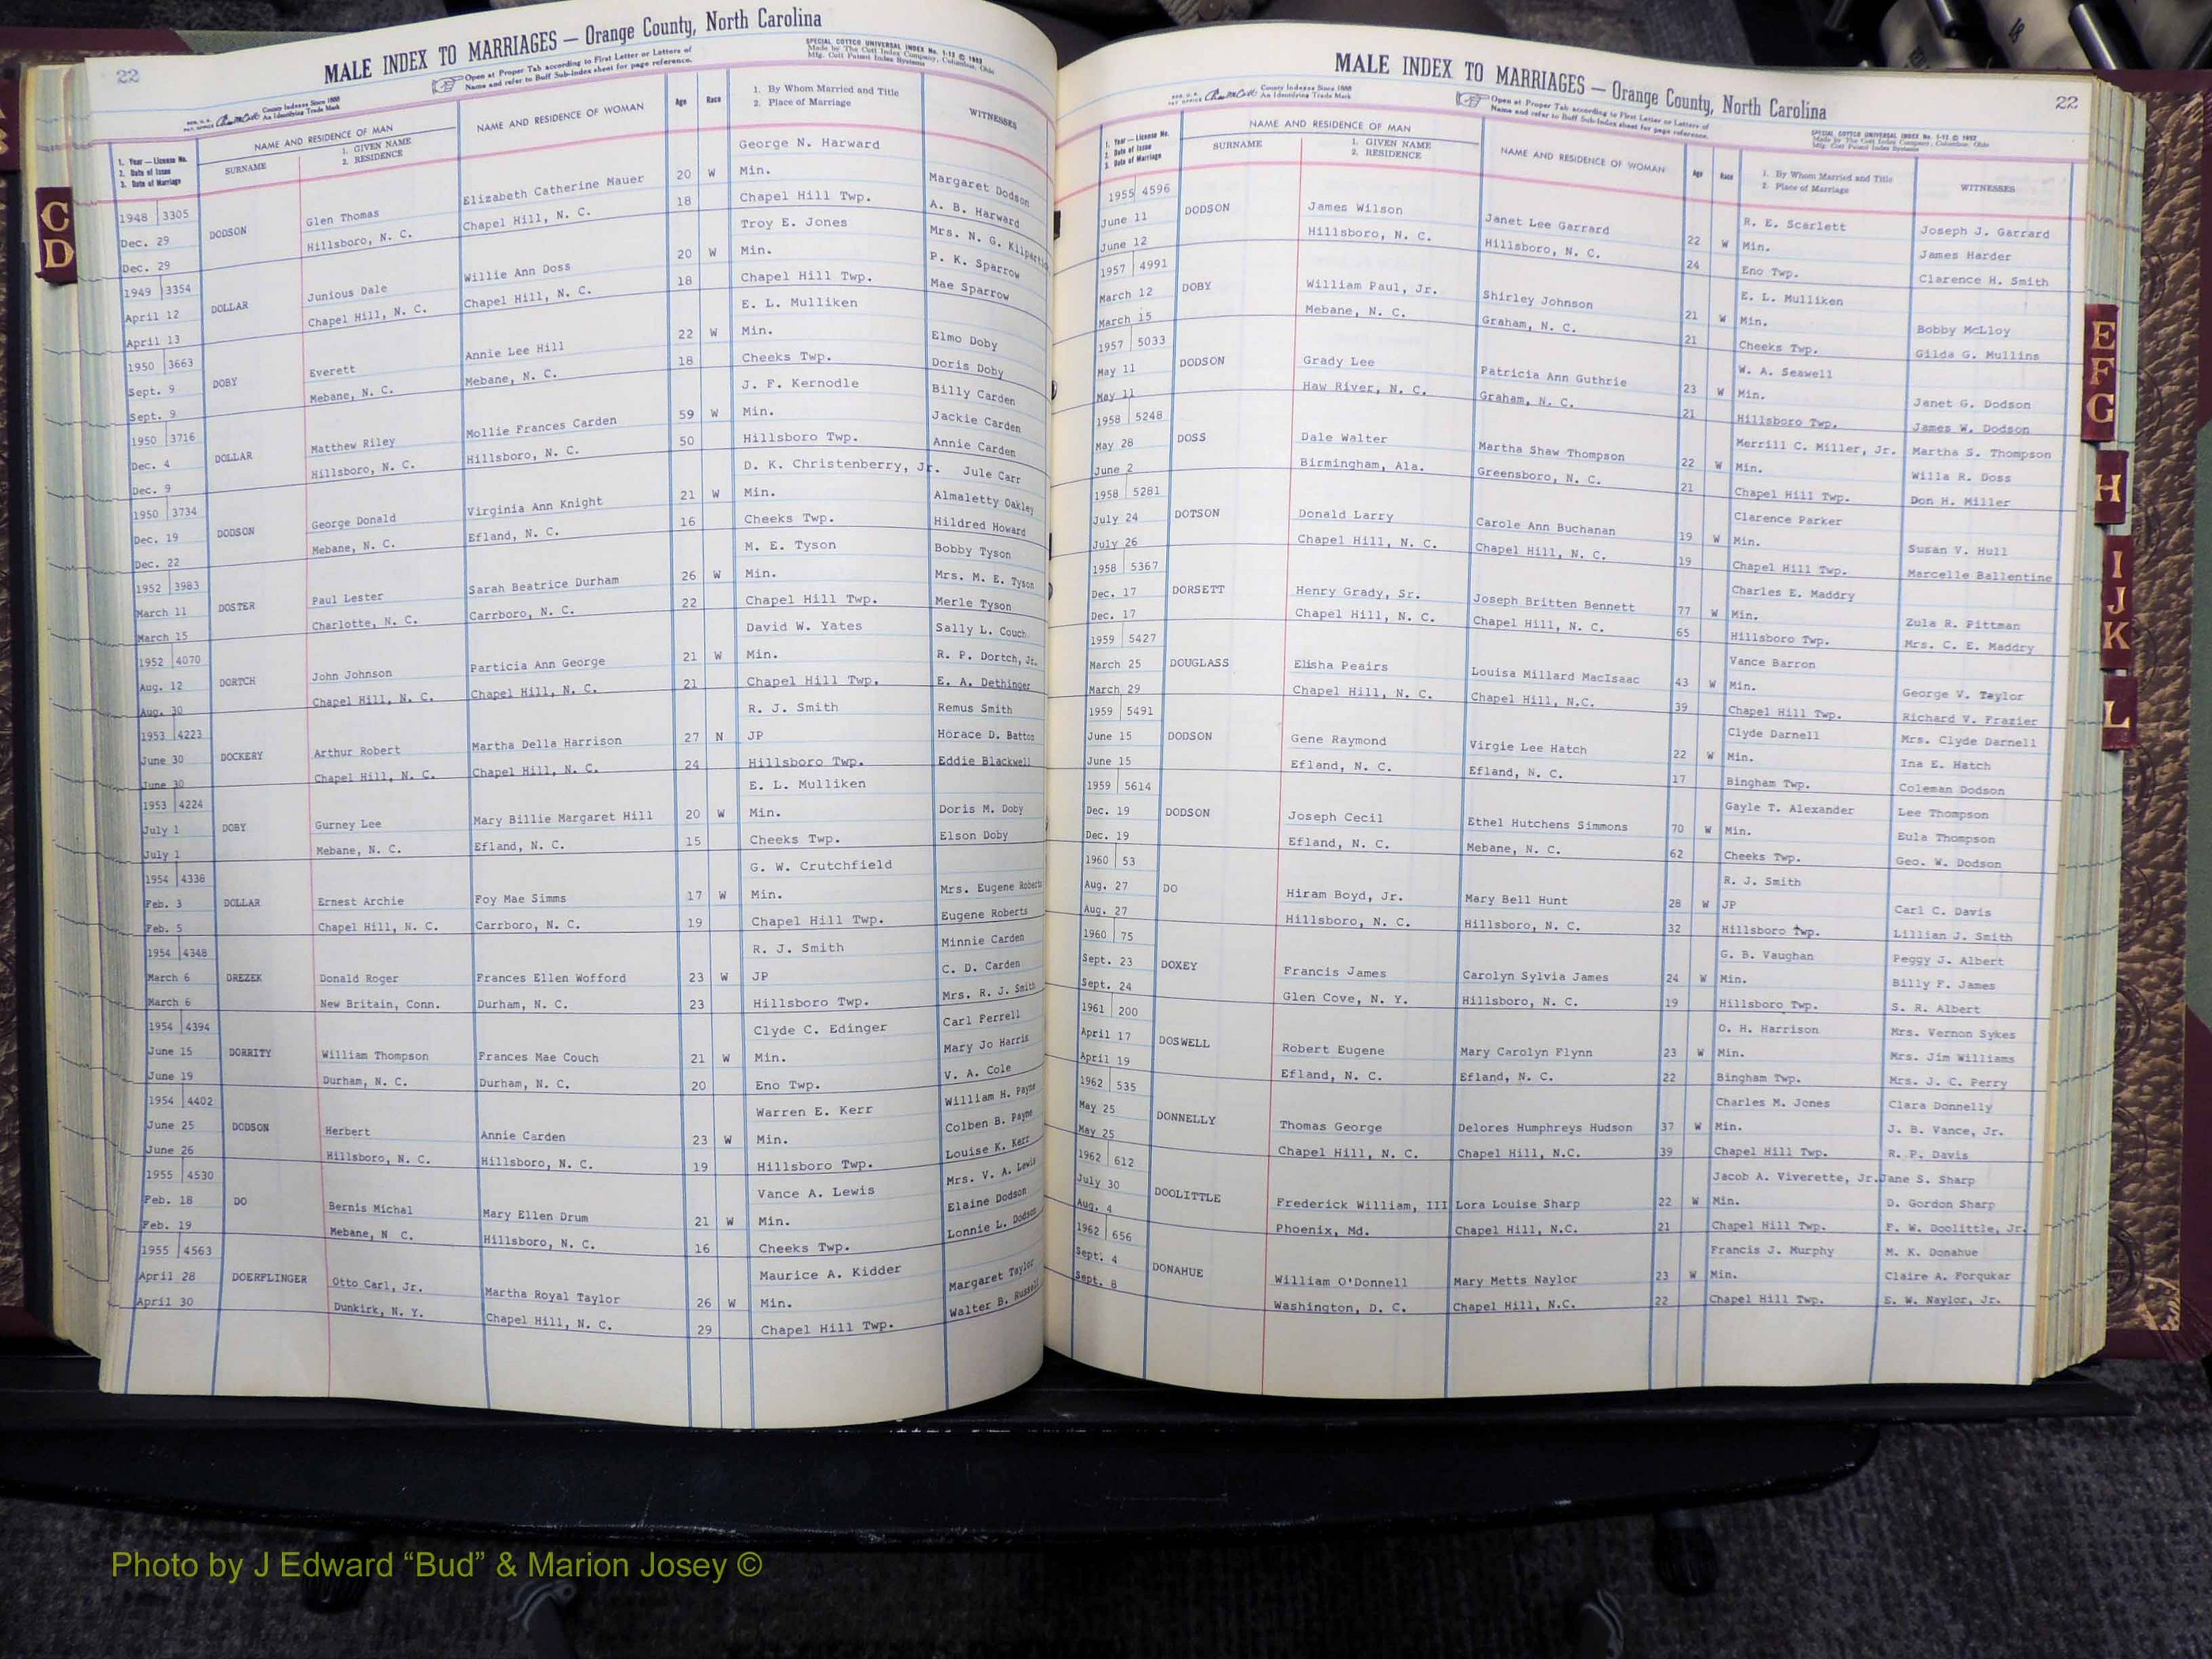 22
MALE INDEX TO MARRIAGES — Orange County, North Carolina
Open at Proper Tab according to First Letter or Letters of
Name and refer to Buff Sub-Index sheet for page reference.
SPECIAL COTTCO UNIVERSAL INDEX No. 1-12 ©
Made by The Cott Index Company, Columbus, Ohio
Mfg. Cott Patent Index Systems
County Indexes Since 1888
An Identifying Trade Mark
1. Year — License No.
2. Date of Issue
3. Date of Marriage
NAME AND RESIDENCE OF MAN
SURNAME
1. GIVEN NAME
2. RESIDENCE
NAME AND RESIDENCE OF WOMAN
Age
Race
1. By Whom Married and Title
2. Place of Marriage
WITNESSES
George N. Harward
1948 3305 Elizabeth Catherine Mauer 20 W Min. Margaret Dodson
Dec. 29 DODSON Glen Thomas Chapel Hill, N. C. 18 Chapel Hill Twp. A. B. Harward
Dec. 29 Hillsboro, N. C. Troy E. Jones Mrs. N. G.
1949 3354 Willie Ann Doss 20 W Min. P. K. Sparrow
April 12 DOLLAR Junious Dale Chapel Hill, N. C. 18 Chapel Hill Twp. Mae Sparrow
April 13 Chapel Hill, N. C. E. L. Mulliken
1950 3663 Annie Lee Hill 22 W Min. Elmo Doby
Sept. 9 DOBY Everett Mebane, N. C. 18 Cheeks Twp. Doris Doby
Sept. 9 Mebane, N. C. J. F. Kernodle Billy Carden
1950 3716 Matthew Riley Mollie Frances Carden 59 W Min. Jackie Carden
Dec. 4 DOLLAR Hillsboro, N. C. Hillsboro, N. C. 50 Hillsboro Twp. Annie Carden
Dec. 9 D. K. Christenberry, Jr. Jule Carr
1950 3734 George Donald Virginia Ann Knight 21 W Min. Almaletty Oakley
Dec. 19 DODSON Mebane, N. C. Efland, N. C. 16 Cheeks Twp. Hildred Howard
Dec. 22 M. E. Tyson Bobby Tyson
1952 3983 Paul Lester Sarah Beatrice Durham 26 W Min. Mrs. M. E. Tyson
March 11 DOSTER Charlotte, N. C. Carrboro, N. C. 22 Chapel Hill Twp. Merle Tyson
March 15 David W. Yates Sally L. Couch
1952 4070 John Johnson Particia Ann George 21 W Min. R. P. Dortch, Jr.
Aug. 12 DORTCH Chapel Hill, N. C. Chapel Hill, N. C. 21 Chapel Hill Twp. E. A. Dethinger
Aug. 30 R. J. Smith Remus Smith
1953 4223 Arthur Robert Martha Della Harrison 27 N JP Horace D. Batton
June 30 DOCKERY Chapel Hill, N. C. Chapel Hill, N. C. 24 Hillsboro Twp. Eddie Blackwell
June 30 E. L. Mulliken
1953 4224 Gurney Lee Mary Billie Margaret Hill 20 W Min. Doris M. Doby
July 1 DOBY Mebane, N. C. Efland, N. C. 15 Cheeks Twp. Elson Doby
July 1 G. W. Crutchfield
1954 4338 Mrs. Eugene Roberts
Feb. 3 DOLLAR Ernest Archie Foy Mae Simms 17 W Min. Eugene Roberts
Feb. 5 Chapel Hill, N. C. Carrboro, N. C. 19 Chapel Hill Twp.
1954 4348 R. J. Smith Minnie Carden
March 6 DREZEK Donald Roger Frances Ellen Wofford 23 W JP C. D. Carden
March 6 New Britain, Conn. Durham, N. C. 23 Hillsboro Twp. Mrs. R. J. Smith
1954 4394 Clyde C. Edinger Carl Ferrell
June 15 DORRITY William Thompson Frances Mae Couch 21 W Min. Mary Jo Harris
June 19 Durham, N. C. Durham, N. C. 20 Eno Twp. V. A. Cole
1954 4402 Warren E. Kerr William H. Payne
June 25 DODSON Herbert Annie Carden 23 W Min. Colben B. Payne
June 26 Hillsboro, N. C. Hillsboro, N. C. 19 Hillsboro Twp. Louise K. Kerr
1955 4530 Vance A. Lewis Mrs. V. A. Lewis
Feb. 18 DO Bernis Michal Mary Ellen Drum 21 W Min. Elaine Dodson
Feb. 19 Mebane, N C. Hillsboro, N. C. 16 Cheeks Twp. Lonnie L. Dodson
1955 4563 Maurice A. Kidder
April 28 DOERFLINGER Otto Carl, Jr. Martha Royal Taylor 26 W Min. Margaret Taylor
April 30 Dunkirk, N. Y. Chapel Hill, N. C. 29 Chapel Hill Twp. Walter B. Russell
MALE INDEX TO MARRIAGES — Orange County, North Carolina
22
County Indexes Since 1888
An Identifying Trade Mark
Open at Proper Tab according to First Letter or Letters of
Name and refer to Buff Sub-Index sheet for page reference.
SPECIAL COTTCO UNIVERSAL INDEX No. 1-12 ©
Made by The Cott Index Company, Columbus, Ohio
Mfg. Cott Patent Index Systems
1. Year — License No.
2. Date of Issue
3. Date of Marriage
NAME AND RESIDENCE OF MAN
SURNAME
1. GIVEN NAME
2. RESIDENCE
NAME AND RESIDENCE OF WOMAN
Age
Race
1. By Whom Married and Title
2. Place of Marriage
WITNESSES
1955 4596 R. E. Scarlett Joseph J. Garrard
June 11 DODSON James Wilson Janet Lee Garrard 22 W Min. James Harder
June 12 Hillsboro, N. C. Hillsboro, N. C. 24 Eno Twp. Clarence H. Smith
1957 4991 E. L. Mulliken
March 12 DOBY William Paul, Jr. Shirley Johnson 21 W Min. Bobby McLloy
March 15 Mebane, N. C. Graham, N. C. 21 Cheeks Twp. Gilda G. Mullins
1957 5033 W. A. Seawell
May 11 DODSON Grady Lee Patricia Ann Guthrie 23 W Min. Janet G. Dodson
May 11 Haw River, N. C. Graham, N. C. 21 Hillsboro Twp. James W. Dodson
1958 5248 Merrill C. Miller, Jr. Martha S. Thompson
May 28 DOSS Dale Walter Martha Shaw Thompson 22 W Min. Willa R. Doss
June 2 Birmingham, Ala. Greensboro, N. C. 21 Chapel Hill Twp. Don H. Miller
1958 5281 Clarence Parker
July 24 DOTSON Donald Larry Carole Ann Buchanan 19 W Min. Susan V. Hull
July 26 Chapel Hill, N. C. Chapel Hill, N. C. 19 Chapel Hill Twp. Marcelle Ballentine
1958 5367 Charles E. Maddry
Dec. 17 DORSETT Henry Grady, Sr. Joseph Britten Bennett 77 W Min. Zula R. Pittman
Dec. 17 Chapel Hill, N. C. Chapel Hill, N. C. 65 Hillsboro Twp. Mrs. C. E. Maddry
1959 5427 Vance Barron
March 25 DOUGLASS Elisha Peairs Louisa Millard MacIsaac 43 W Min. George V. Taylor
March 29 Chapel Hill, N. C. Chapel Hill, N.C. 39 Chapel Hill Twp. Richard V. Frazier
1959 5491 Clyde Darnell Mrs. Clyde Darnell
June 15 DODSON Gene Raymond Virgie Lee Hatch 22 W Min. Ina E. Hatch
June 15 Efland, N. C. Efland, N. C. 17 Bingham Twp. Coleman Dodson
1959 5614 Gayle T. Alexander Lee Thompson
Dec. 19 DODSON Joseph Cecil Ethel Hutchens Simmons 70 W Min. Eula Thompson
Dec. 19 Efland, N. C. Mebane, N. C. 62 Cheeks Twp. Geo. W. Dodson
1960 53 R. J. Smith
Aug. 27 DO Hiram Boyd, Jr. Mary Bell Hunt 28 W JP Carl C. Davis
Aug. 27 Hillsboro, N. C. Hillsboro, N. C. 32 Hillsboro Twp. Lillian J. Smith
1960 75 G. B. Vaughan Peggy J. Albert
Sept. 23 DOXEY Francis James Carolyn Sylvia James 24 W Min. Billy F. James
Sept. 24 Glen Cove, N. Y. Hillsboro, N. C. 19 Hillsboro Twp. S. R. Albert
1961 200 O. H. Harrison Mrs. Vernon Sykes
April 17 DOSWELL Robert Eugene Mary Carolyn Flynn 23 W Min. Mrs. Jim Williams
April 19 Efland, N. C. Efland, N. C. 22 Bingham Twp. Mrs. J. C. Perry
1962 535 Charles M. Jones Clara Donnelly
May 25 DONNELLY Thomas George Delores Humphreys Hudson 37 W Min. J. B. Vance, Jr.
May 25 Chapel Hill, N. C. Chapel Hill, N.C. 39 Chapel Hill Twp. R. P. Davis
1962 612 Jacob A. Viverette, Jr. Jane S. Sharp
July 30 DOOLITTLE Frederick William, III Lora Louise Sharp 22 W Min. D. Gordon Sharp
Aug. 4 Phoenix, Md. Chapel Hill, N.C. 21 Chapel Hill Twp. F. W. Doolittle, Jr.
1962 656 Francis J. Murphy M. K. Donahue
Sept. 4 DONAHUE William O'Donnell Mary Metts Naylor 23 W Min. Claire A. Forqukar
Sept. 8 Washington, D. C. Chapel Hill, N.C. 22 Chapel Hill Twp. E. W. Naylor, Jr.
C
D
E
F
G
H
I
J
K
L
Photo by J Edward “Bud” & Marion Josey ©